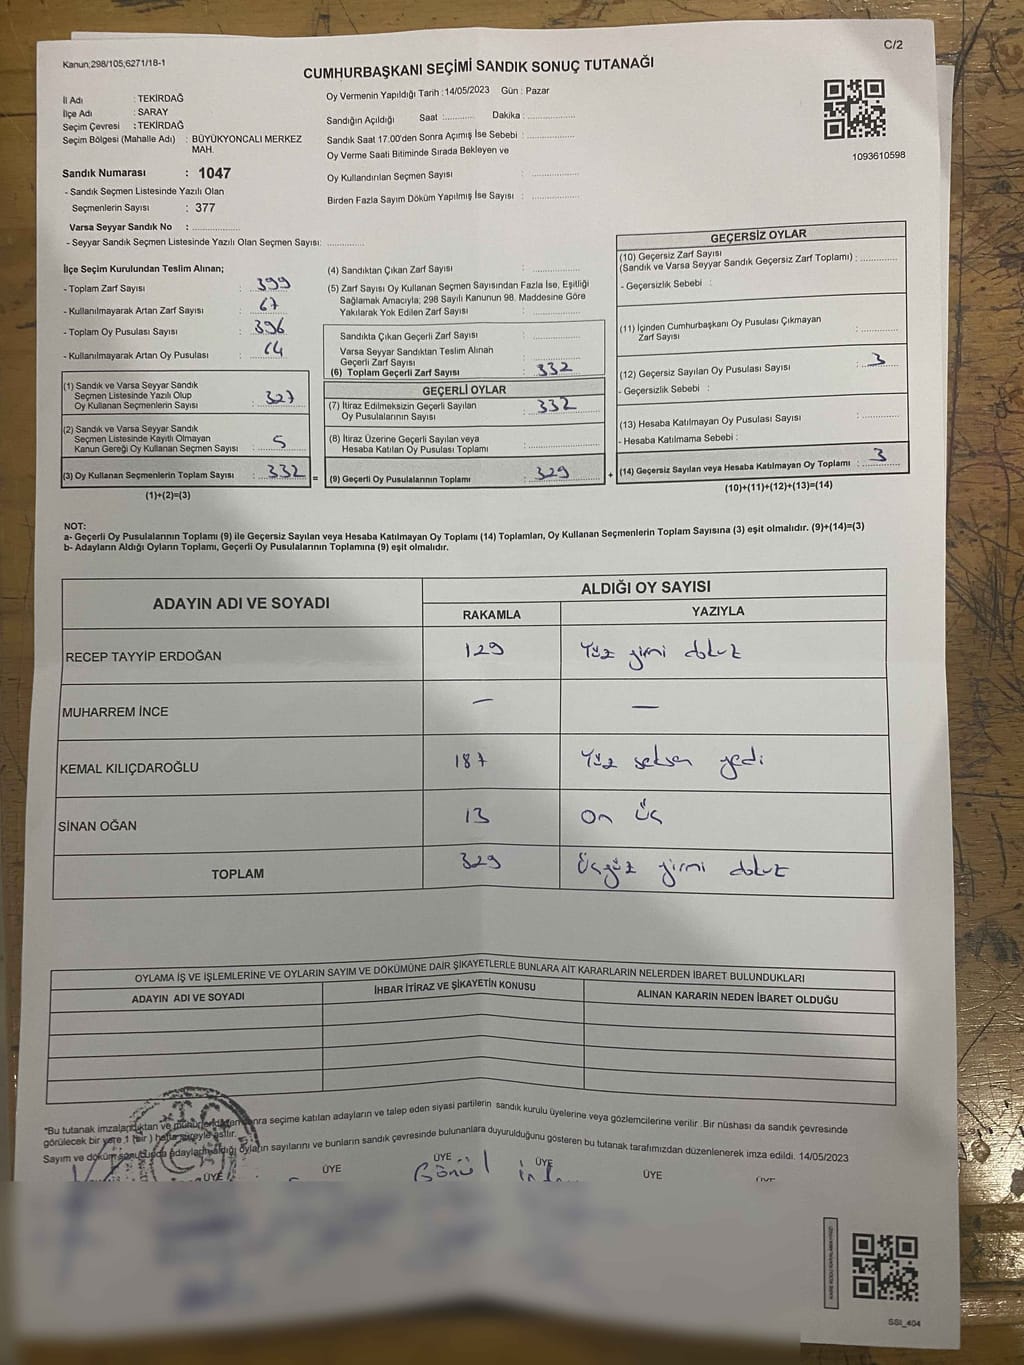 C/2
Kanun;298/105;6271/18-1
CUMHURBAŞKANI SEÇİMİ SANDIK SONUÇ TUTANAĞI
İl Adı : TEKİRDAĞ
İlçe Adı : SARAY
Seçim Çevresi : TEKİRDAĞ
Seçim Bölgesi (Mahalle Adı) : BÜYÜKYONCALI MERKEZ
MAH.
Sandık Numarası : 1047
- Sandık Seçmen Listesinde Yazılı Olan
Seçmenlerin Sayısı : 377
Varsa Seyyar Sandık No : ..............
- Seyyar Sandık Seçmen Listesinde Yazılı Olan Seçmen Sayısı: ............
Oy Vermenin Yapıldığı Tarih :14/05/2023 Gün : Pazar
Sandığın Açıldığı Saat :.......... Dakika :..............
Sandık Saat 17:00'den Sonra Açımış İse Sebebi : ..............
Oy Verme Saati Bitiminde Sırada Bekleyen ve
Oy Kullandırılan Seçmen Sayısı : ..............
Birden Fazla Sayım Döküm Yapılmış İse Sayısı : ..............
1093610598
İlçe Seçim Kurulundan Teslim Alınan;
- Toplam Zarf Sayısı : 399
- Kullanılmayarak Artan Zarf Sayısı : 67
- Toplam Oy Pusulası Sayısı : 396
- Kullanılmayarak Artan Oy Pusulası : 64
(1) Sandık ve Varsa Seyyar Sandık
Seçmen Listesinde Yazılı Olup
Oy Kullanan Seçmenlerin Sayısı : 327
(2) Sandık ve Varsa Seyyar Sandık
Seçmen Listesinde Kayıtlı Olmayan
Kanun Gereği Oy Kullanan Seçmen Sayısı : 5
(3) Oy Kullanan Seçmenlerin Toplam Sayısı : 332 =
(1)+(2)=(3)
(4) Sandıktan Çıkan Zarf Sayısı : ..............
(5) Zarf Sayısı Oy Kullanan Seçmen Sayısından Fazla İse, Eşitliği
Sağlamak Amacıyla; 298 Sayılı Kanunun 98. Maddesine Göre
Yakılarak Yok Edilen Zarf Sayısı : ..............
Sandıkta Çıkan Geçerli Zarf Sayısı : ..............
Varsa Seyyar Sandıktan Teslim Alınan
Geçerli Zarf Sayısı : ..............
(6) Toplam Geçerli Zarf Sayısı : 332
GEÇERLİ OYLAR
(7) İtiraz Edilmeksizin Geçerli Sayılan
Oy Pusulalarının Sayısı : 332
(8) İtiraz Üzerine Geçerli Sayılan veya
Hesaba Katılan Oy Pusulası Toplamı : ..............
(9) Geçerli Oy Pusulalarının Toplamı : 329 +
GEÇERSİZ OYLAR
(10) Geçersiz Zarf Sayısı
(Sandık ve Varsa Seyyar Sandık Geçersiz Zarf Toplamı) : ..........
- Geçersizlik Sebebi :
(11) İçinden Cumhurbaşkanı Oy Pusulası Çıkmayan
Zarf Sayısı : ..........
(12) Geçersiz Sayılan Oy Pusulası Sayısı : 3
- Geçersizlik Sebebi :
(13) Hesaba Katılmayan Oy Pusulası Sayısı : ..........
- Hesaba Katılmama Sebebi :
(14) Geçersiz Sayılan veya Hesaba Katılmayan Oy Toplamı : 3
(10)+(11)+(12)+(13)=(14)
NOT:
a- Geçerli Oy Pusulalarının Toplamı (9) ile Geçersiz Sayılan veya Hesaba Katılmayan Oy Toplamı (14) Toplamları, Oy Kullanan Seçmenlerin Toplam Sayısına (3) eşit olmalıdır. (9)+(14)=(3)
b- Adayların Aldığı Oyların Toplamı, Geçerli Oy Pusulalarının Toplamına (9) eşit olmalıdır.
ADAYIN ADI VE SOYADI ALDIĞI OY SAYISI
RAKAMLA YAZIYLA
RECEP TAYYİP ERDOĞAN 129 Yüz yirmi dokuz
MUHARREM İNCE — —
KEMAL KILIÇDAROĞLU 187 Yüz seksen yedi
SİNAN OĞAN 13 On üç
TOPLAM 329 Üçyüz yirmi dokuz
OYLAMA İŞ VE İŞLEMLERİNE VE OYLARIN SAYIM VE DÖKÜMÜNE DAİR ŞİKAYETLERLE BUNLARA AİT KARARLARIN NELERDEN İBARET BULUNDUKLARI
ADAYIN ADI VE SOYADI İHBAR İTİRAZ VE ŞİKAYETİN KONUSU ALINAN KARARIN NEDEN İBARET OLDUĞU
"Bu tutanak imzalandıktan ve mühürlendikten sonra seçime katılan adayların ve talep eden siyasi partilerin sandık kurulu üyelerine veya gözlemcilerine verilir .Bir nüshası da sandık çevresinde
görülecek bir yere 1 (bir ) hafta süreyle asılır.
Sayım ve döküm sonucunda adayların aldığı oyların sayılarını ve bunların sandık çevresinde bulunanlara duyurulduğunu gösteren bu tutanak tarafımızdan düzenlenerek imza edildi. 14/05/2023
ÜYE ÜYE ÜYE ÜYE ÜYE ÜYE
Gönül
SSI_404